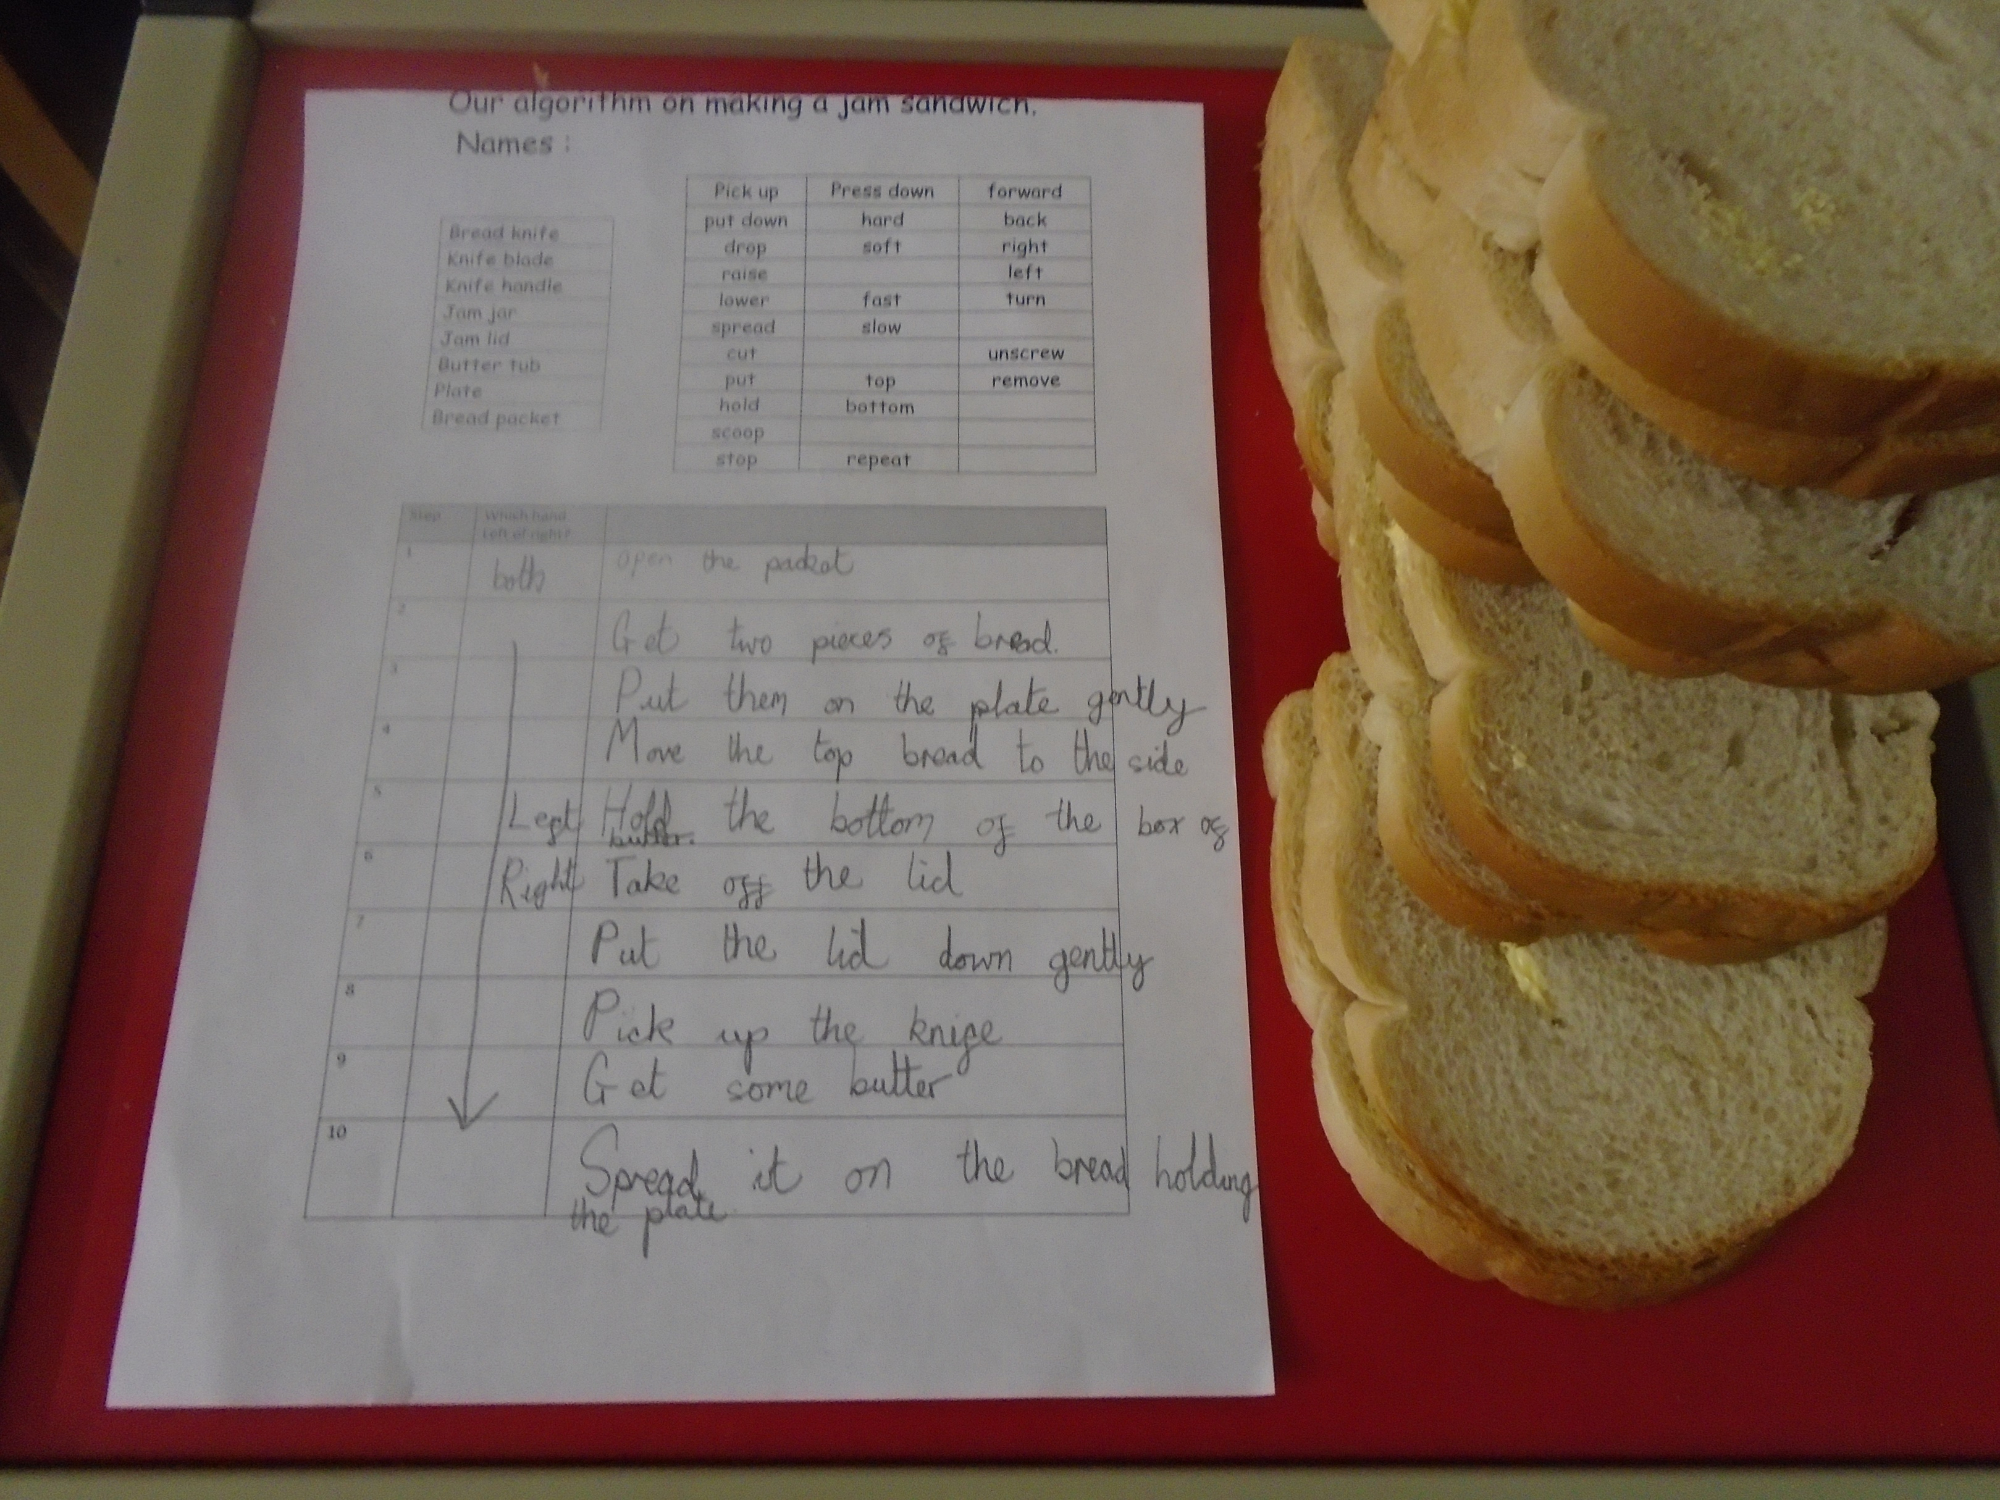 Our algorithm on making a jam sandwich.
Names :
Bread knife
Knife blade
Knife handle
Jam jar
Jam lid
Butter tub
Plate
Bread packet
Pick up Press down forward
put down hard back
drop soft right
raise left
lower fast turn
spread slow
cut unscrew
put top remove
hold bottom
scoop
stop repeat
Step Which hand
Left or right?
1 both open the packet
2 Get two pieces of bread.
3 Put them on the plate gently
4 Move the top bread to the side
5 Left Hold the bottom of the box of
butter.
6 Right Take off the lid
7 Put the lid down gently
8 Pick up the knife
9 Get some butter
10 Spread it on the bread holding
the plate